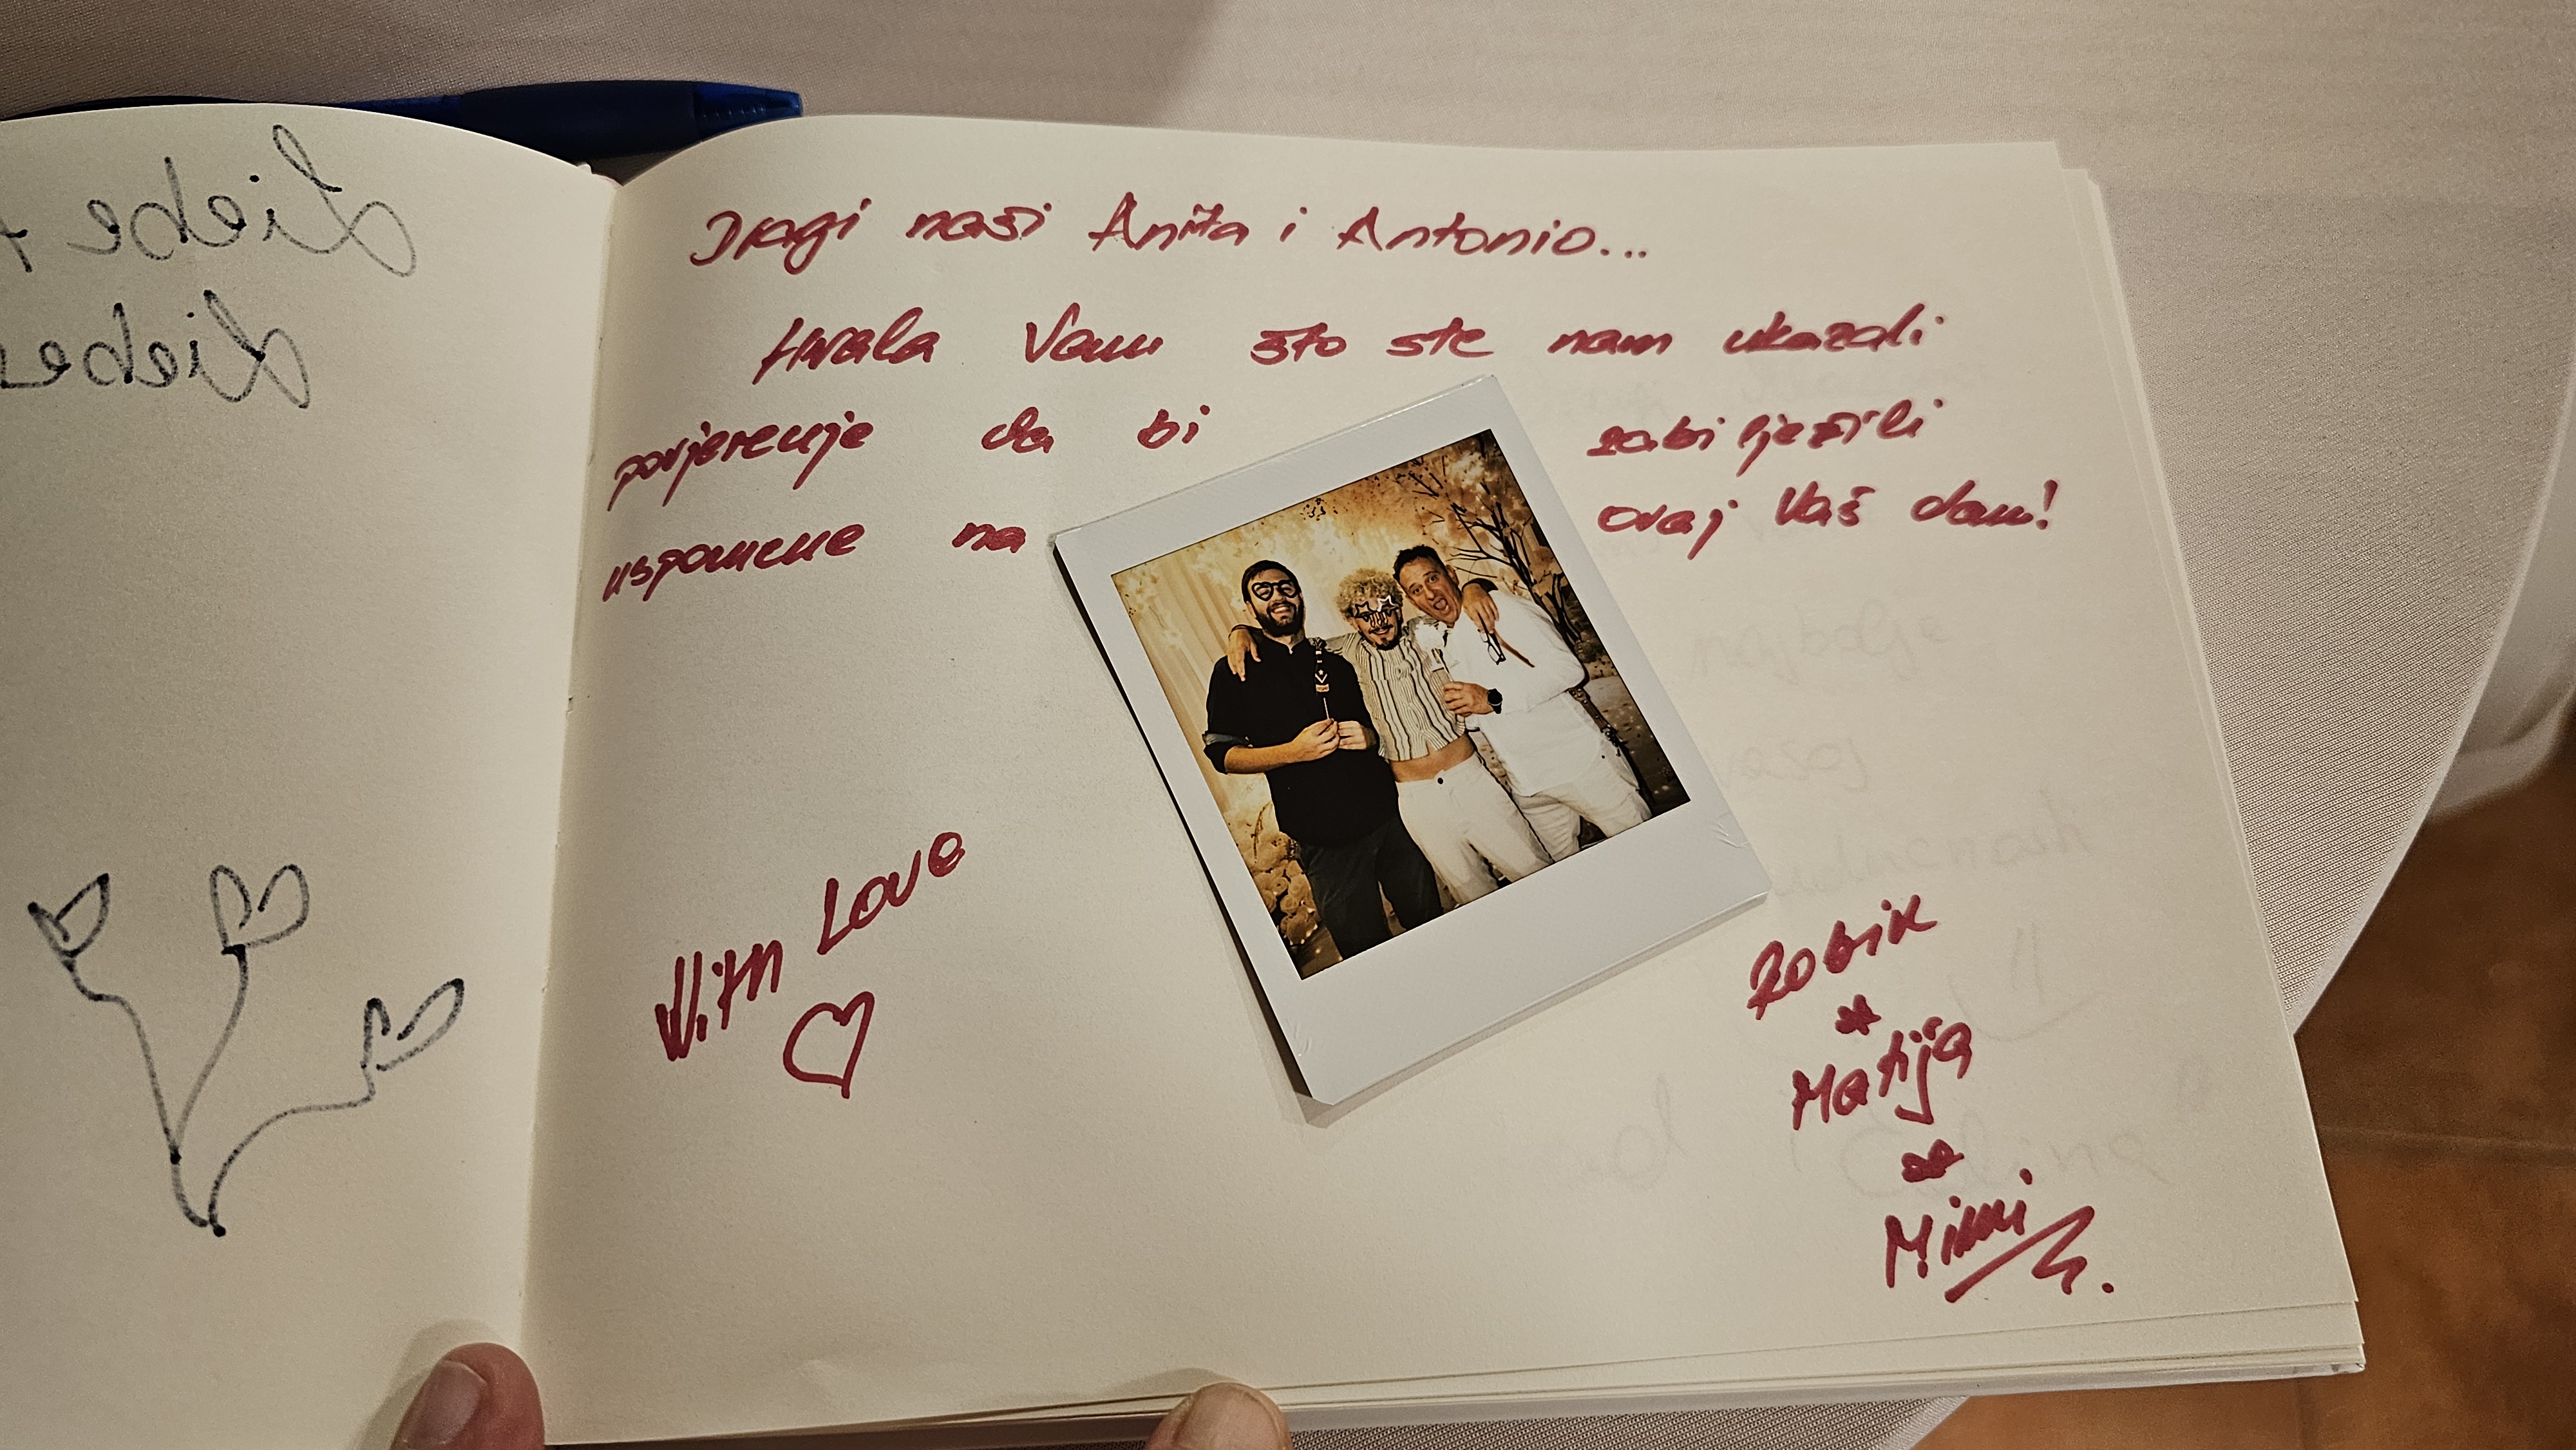 Dragi naši Anita i Antonio...
Hvala Vam što ste nam ukazali
povjerenje da bi zabilježili
uspomene na ovaj Vaš dan!
With Love
Robik
Matija
Mimi